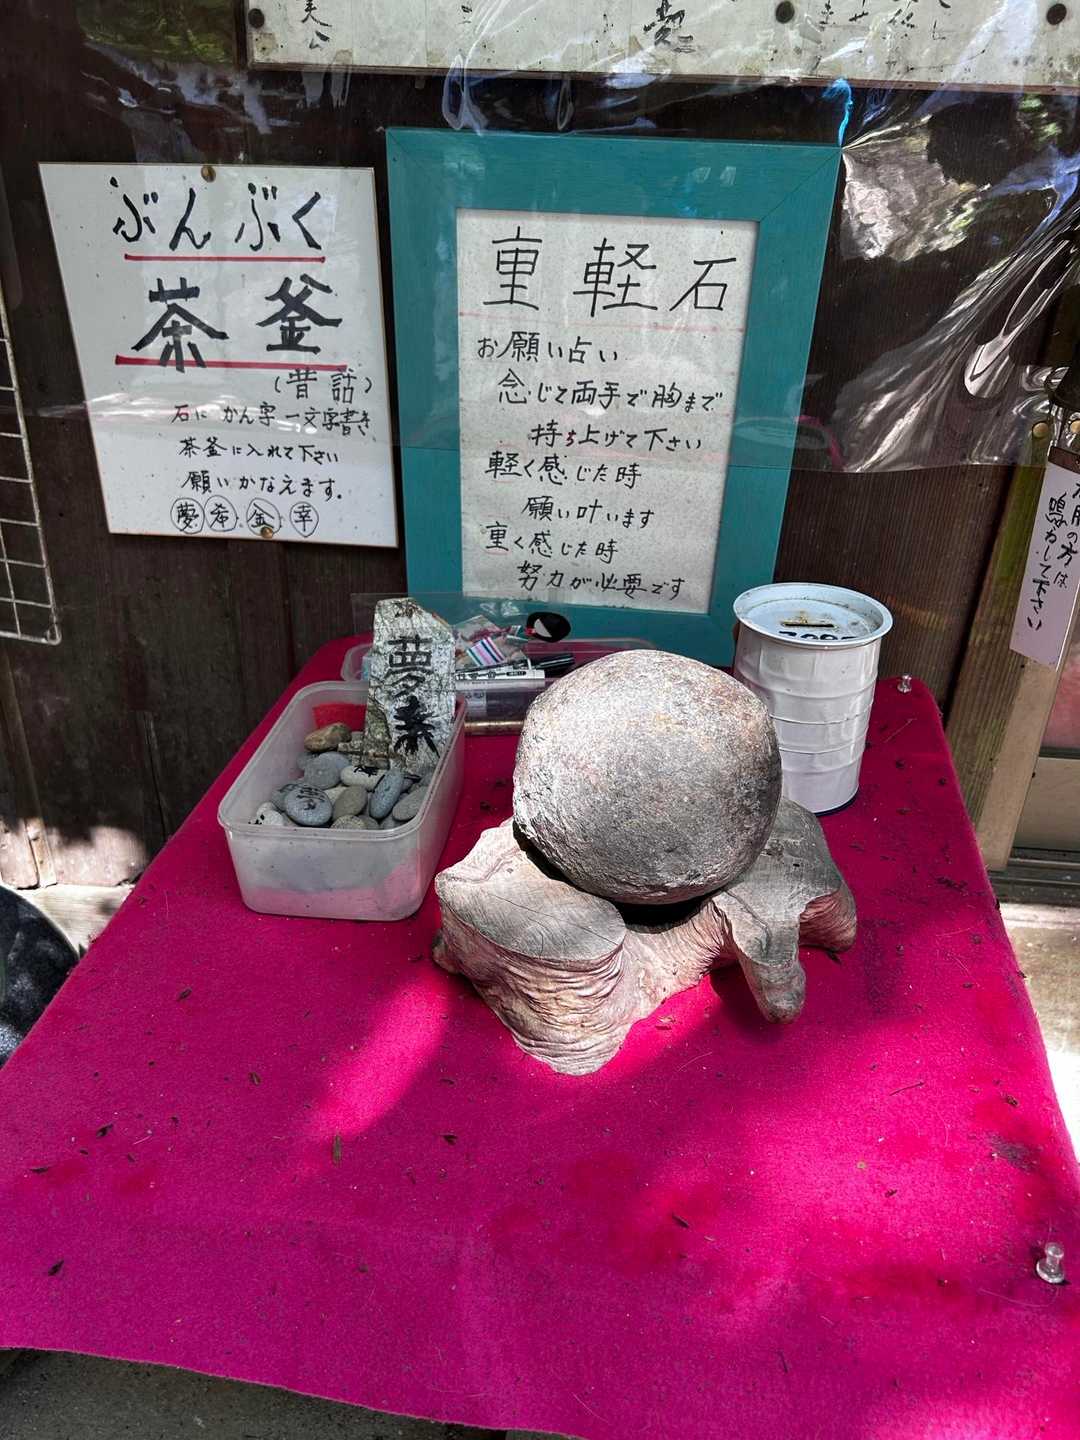 ぶんぶく
茶釜
(昔話)
石に かん字 一文字書き
茶釜に入れて下さい
願いかなえます。
夢 希 金 幸
重軽石
お願い占い
念じて両手で胸まで
持ち上げて下さい
軽く感じた時
願い叶います
重く感じた時
努力が必要です
夢
の方は
鳴らして下さい